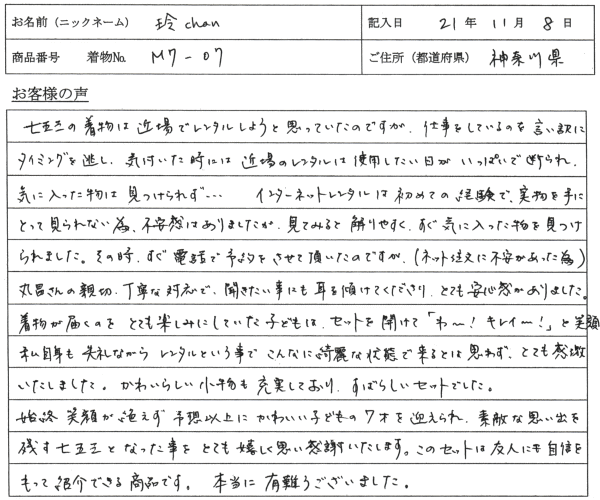 お名前（ニックネーム） 玲chan 記入日 21年 11月 8日
商品番号 着物No. M7-07 ご住所（都道府県） 神奈川県
お客様の声
七五三の着物は近場でレンタルしようと思っていたのですが、仕事をしているのを言い訳に
タイミングを逃し、気付いた時には近場のレンタルは使用したい日がいっぱいで断られ、
気に入った物は見つけられず… インターネットレンタルは初めての経験で、実物を手に
とって見られない為、不安感はありましたが、見てみると解りやすく、すぐ気に入った物を見つけ
られました。その時、すぐ電話で予約をさせて頂いたのですが、（ネット注文に不安があった為）
丸昌さんの親切、丁寧な対応で、聞きたい事にも耳を傾けてくださり、とても安心感がありました。
着物が届くのをとても楽しみにしていた子どもは、セットを開けて「わ〜！キレイ〜！」と笑顔
私自身も失礼ながらレンタルという事でこんなに綺麗な状態で来るとは思わず、とても感激
いたしました。かわいらしい小物も充実しており、すばらしいセットでした。
始終笑顔が絶えず予想以上にかわいい子どもの7才を迎えられ、素敵な思い出を
残す七五三となった事をとても嬉しく思い感謝いたします。このセットは友人にも自信を
もって紹介できる商品です。 本当に有難うございました。